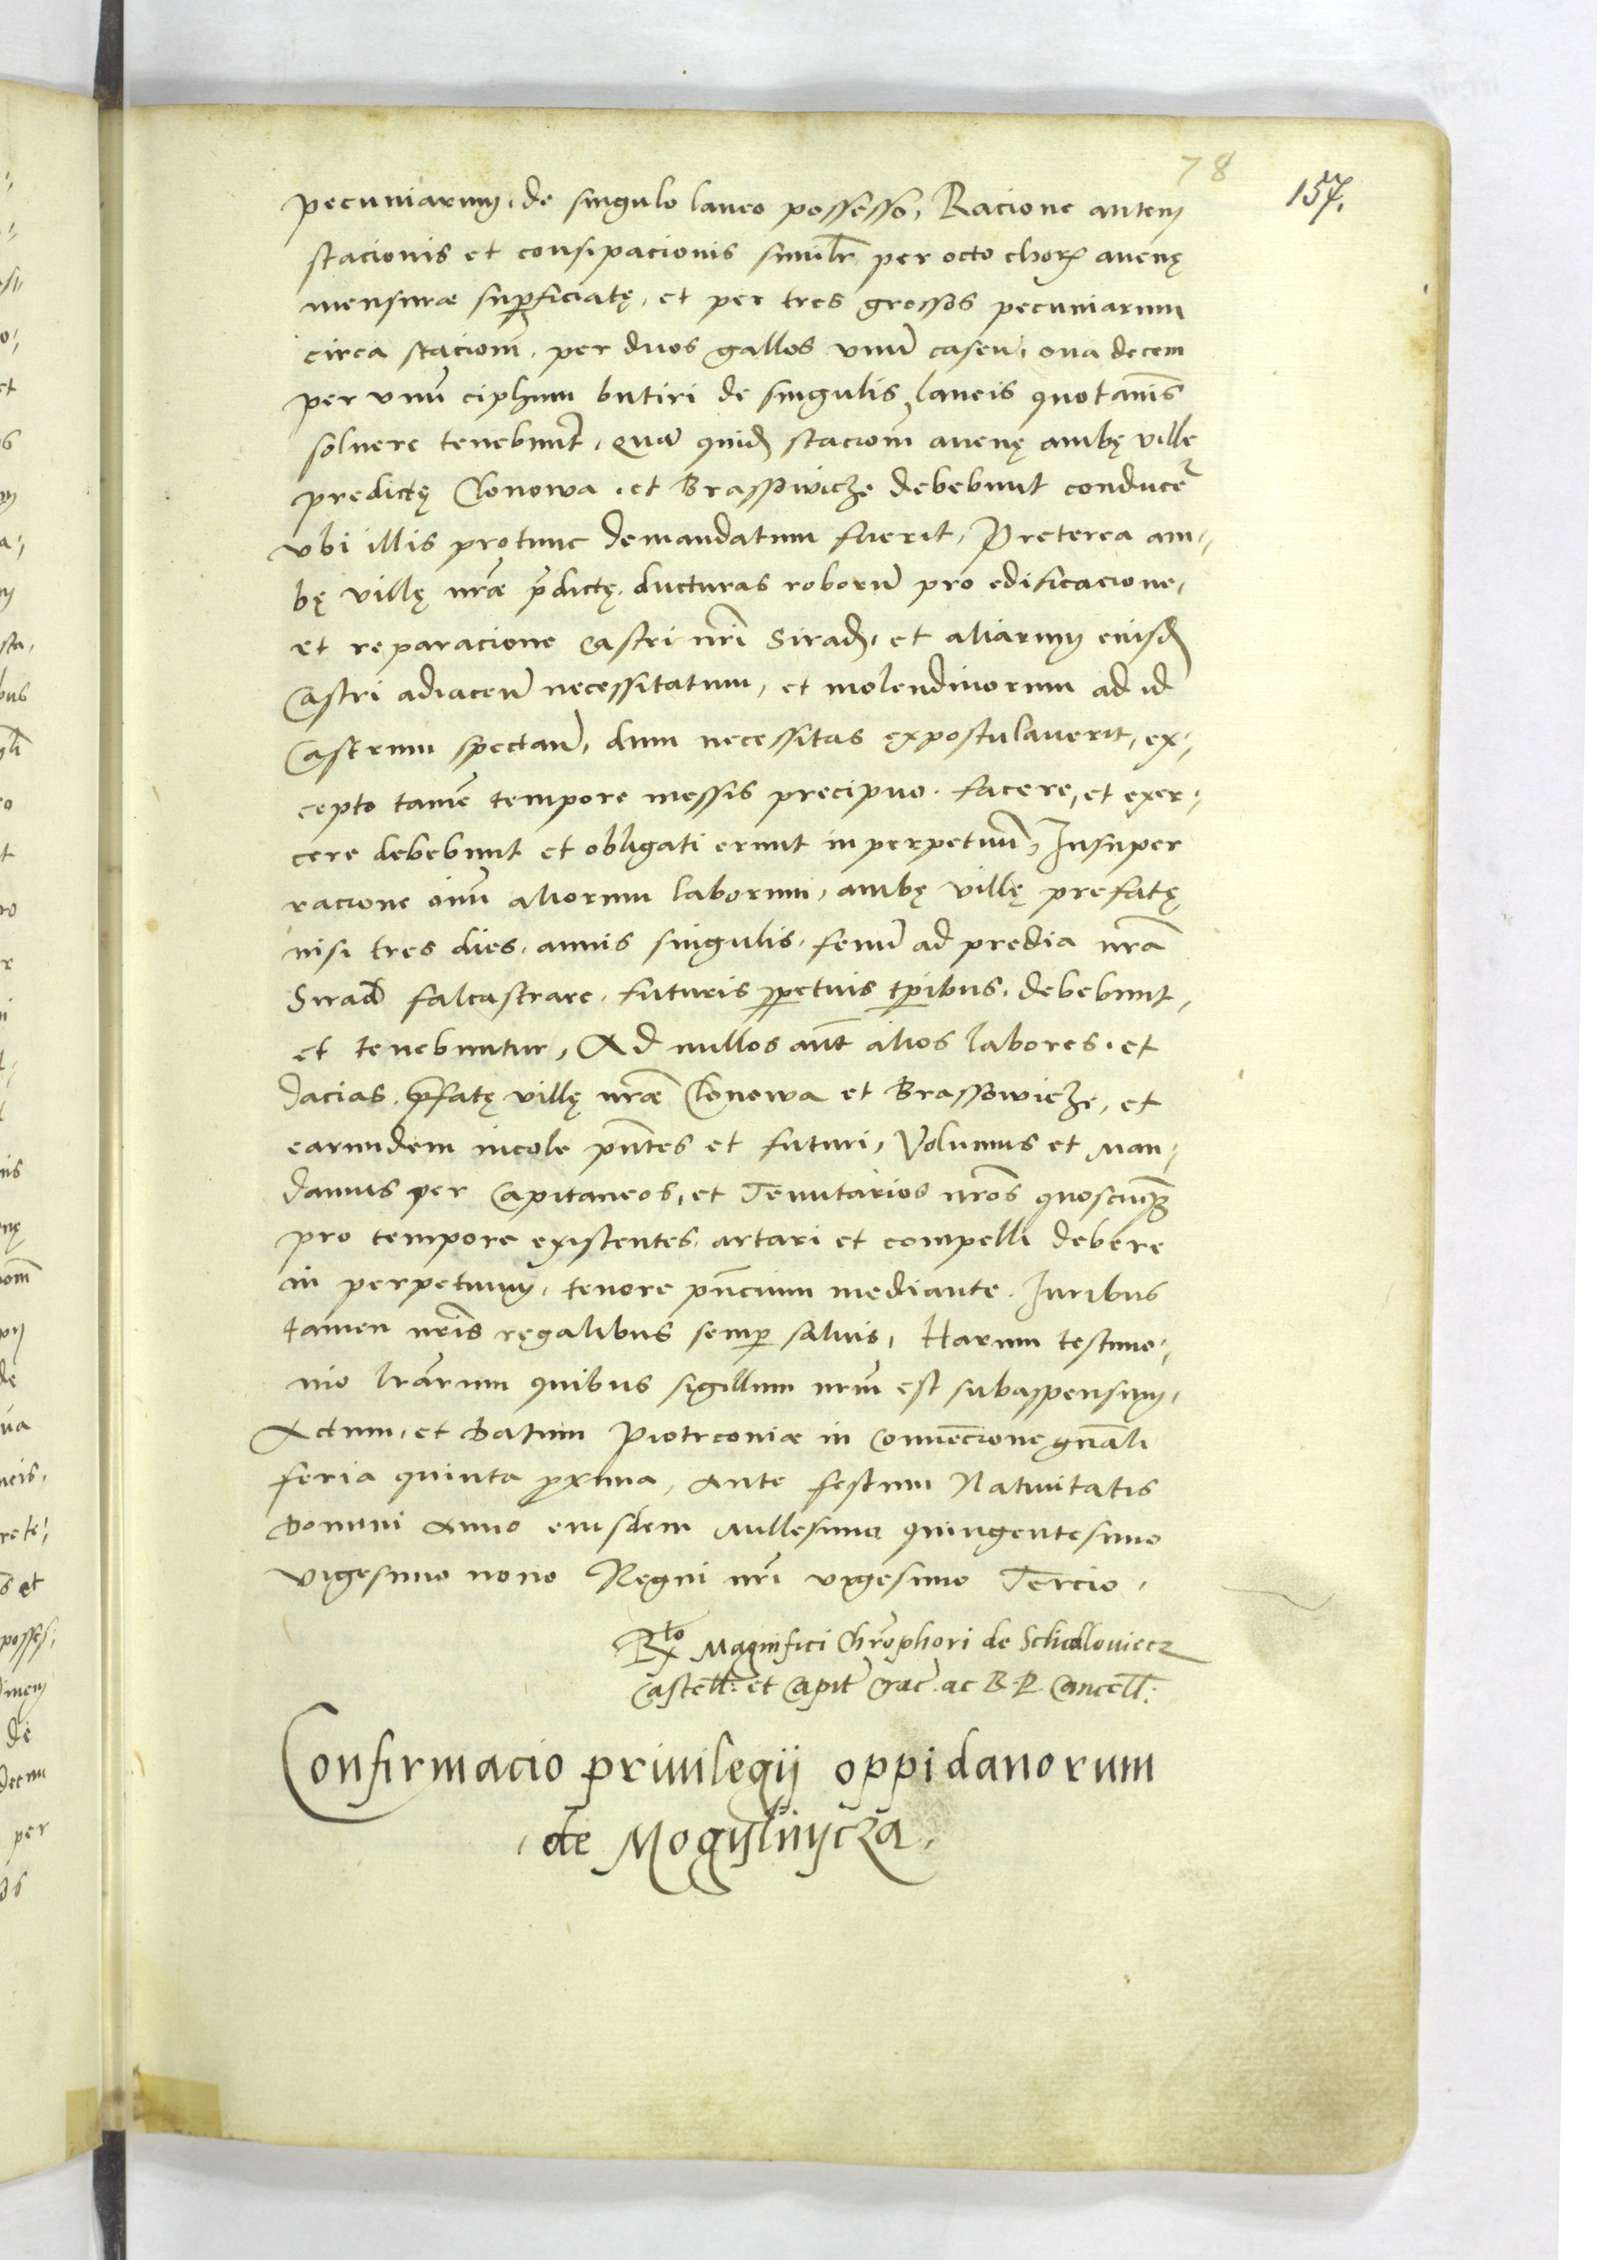 78
157.
pecuniarum, de singulo laneo possesso, Racione autem
stacionis et consipacionis simil̄r per octo choros avenę
mensurae sup̱ficiatę, et per tres grossos pecuniarum
circa stacioñm, per duos gallos vnū caseū, ova decem
per vnū ciphum butiri de singulis laneis quotañis
soluere tenebunt̄, Quā quid̄ stacioñm avenę ambę ville
predictę Clonowa, et Brassowicze debebunt conducer̄
vbi illis protunc demandatum fuerit, Preterea am-
bę villę nr̄ae p̄dictę ducturas roborū pro edificacione,
et reparacione Castri nr̄i Sirad̄, et aliarum eiusd̄
Castri adiaceñ necessitatum, et molendinorum ad id
Castrum spectañ, dum necessitas expostulaverit, ex-
cepto tamē tempore messis precipuo facere, et exer-
cere debebunt et obligati erunt in perpetuū, Insuper
racione oiñm aliorum laborum, ambę villę prefatę
nisi tres dies, annis singulis, fenū ad predia nr̄a
Sirad̄ falcastrare, futuris p̱petuis tp̱ribus, debebunt,
et tenebuntur, Ad nullos aūt alios labores, et
dacias, p̄fatę villę nr̄ae Clonowa et Brassowicze, et
earundem incole pñtes et futuri, Volumus et Man-
damus per Capitaneos, et Tenutarios nr̄os quoscunq̄
pro tempore existentes, artari et compelli debere
in perpetuum, tenore pñcium mediante. Iuribus
tamen nr̄is regalibus semp̱ salvis, Harum testimo-
nio lr̄arum quibus sigillum nr̄m est subappensum,
Actum, et Datum Piotrconiae in Convēcione gñali
feria quinta p̱xima, Ante festum Nativitatis
Domini Anno eiusdem Millesimo quingentesimo
vigesimo nono Regni nr̄i vigesimo Tercio,
Rto Magnifici Chr̄ophori de Schidloviecz
Castell: et Capit̄ Crac̄. ac R. P. Cancell:
Confirmacio privilegij oppidanorum
de Mogylnycza,